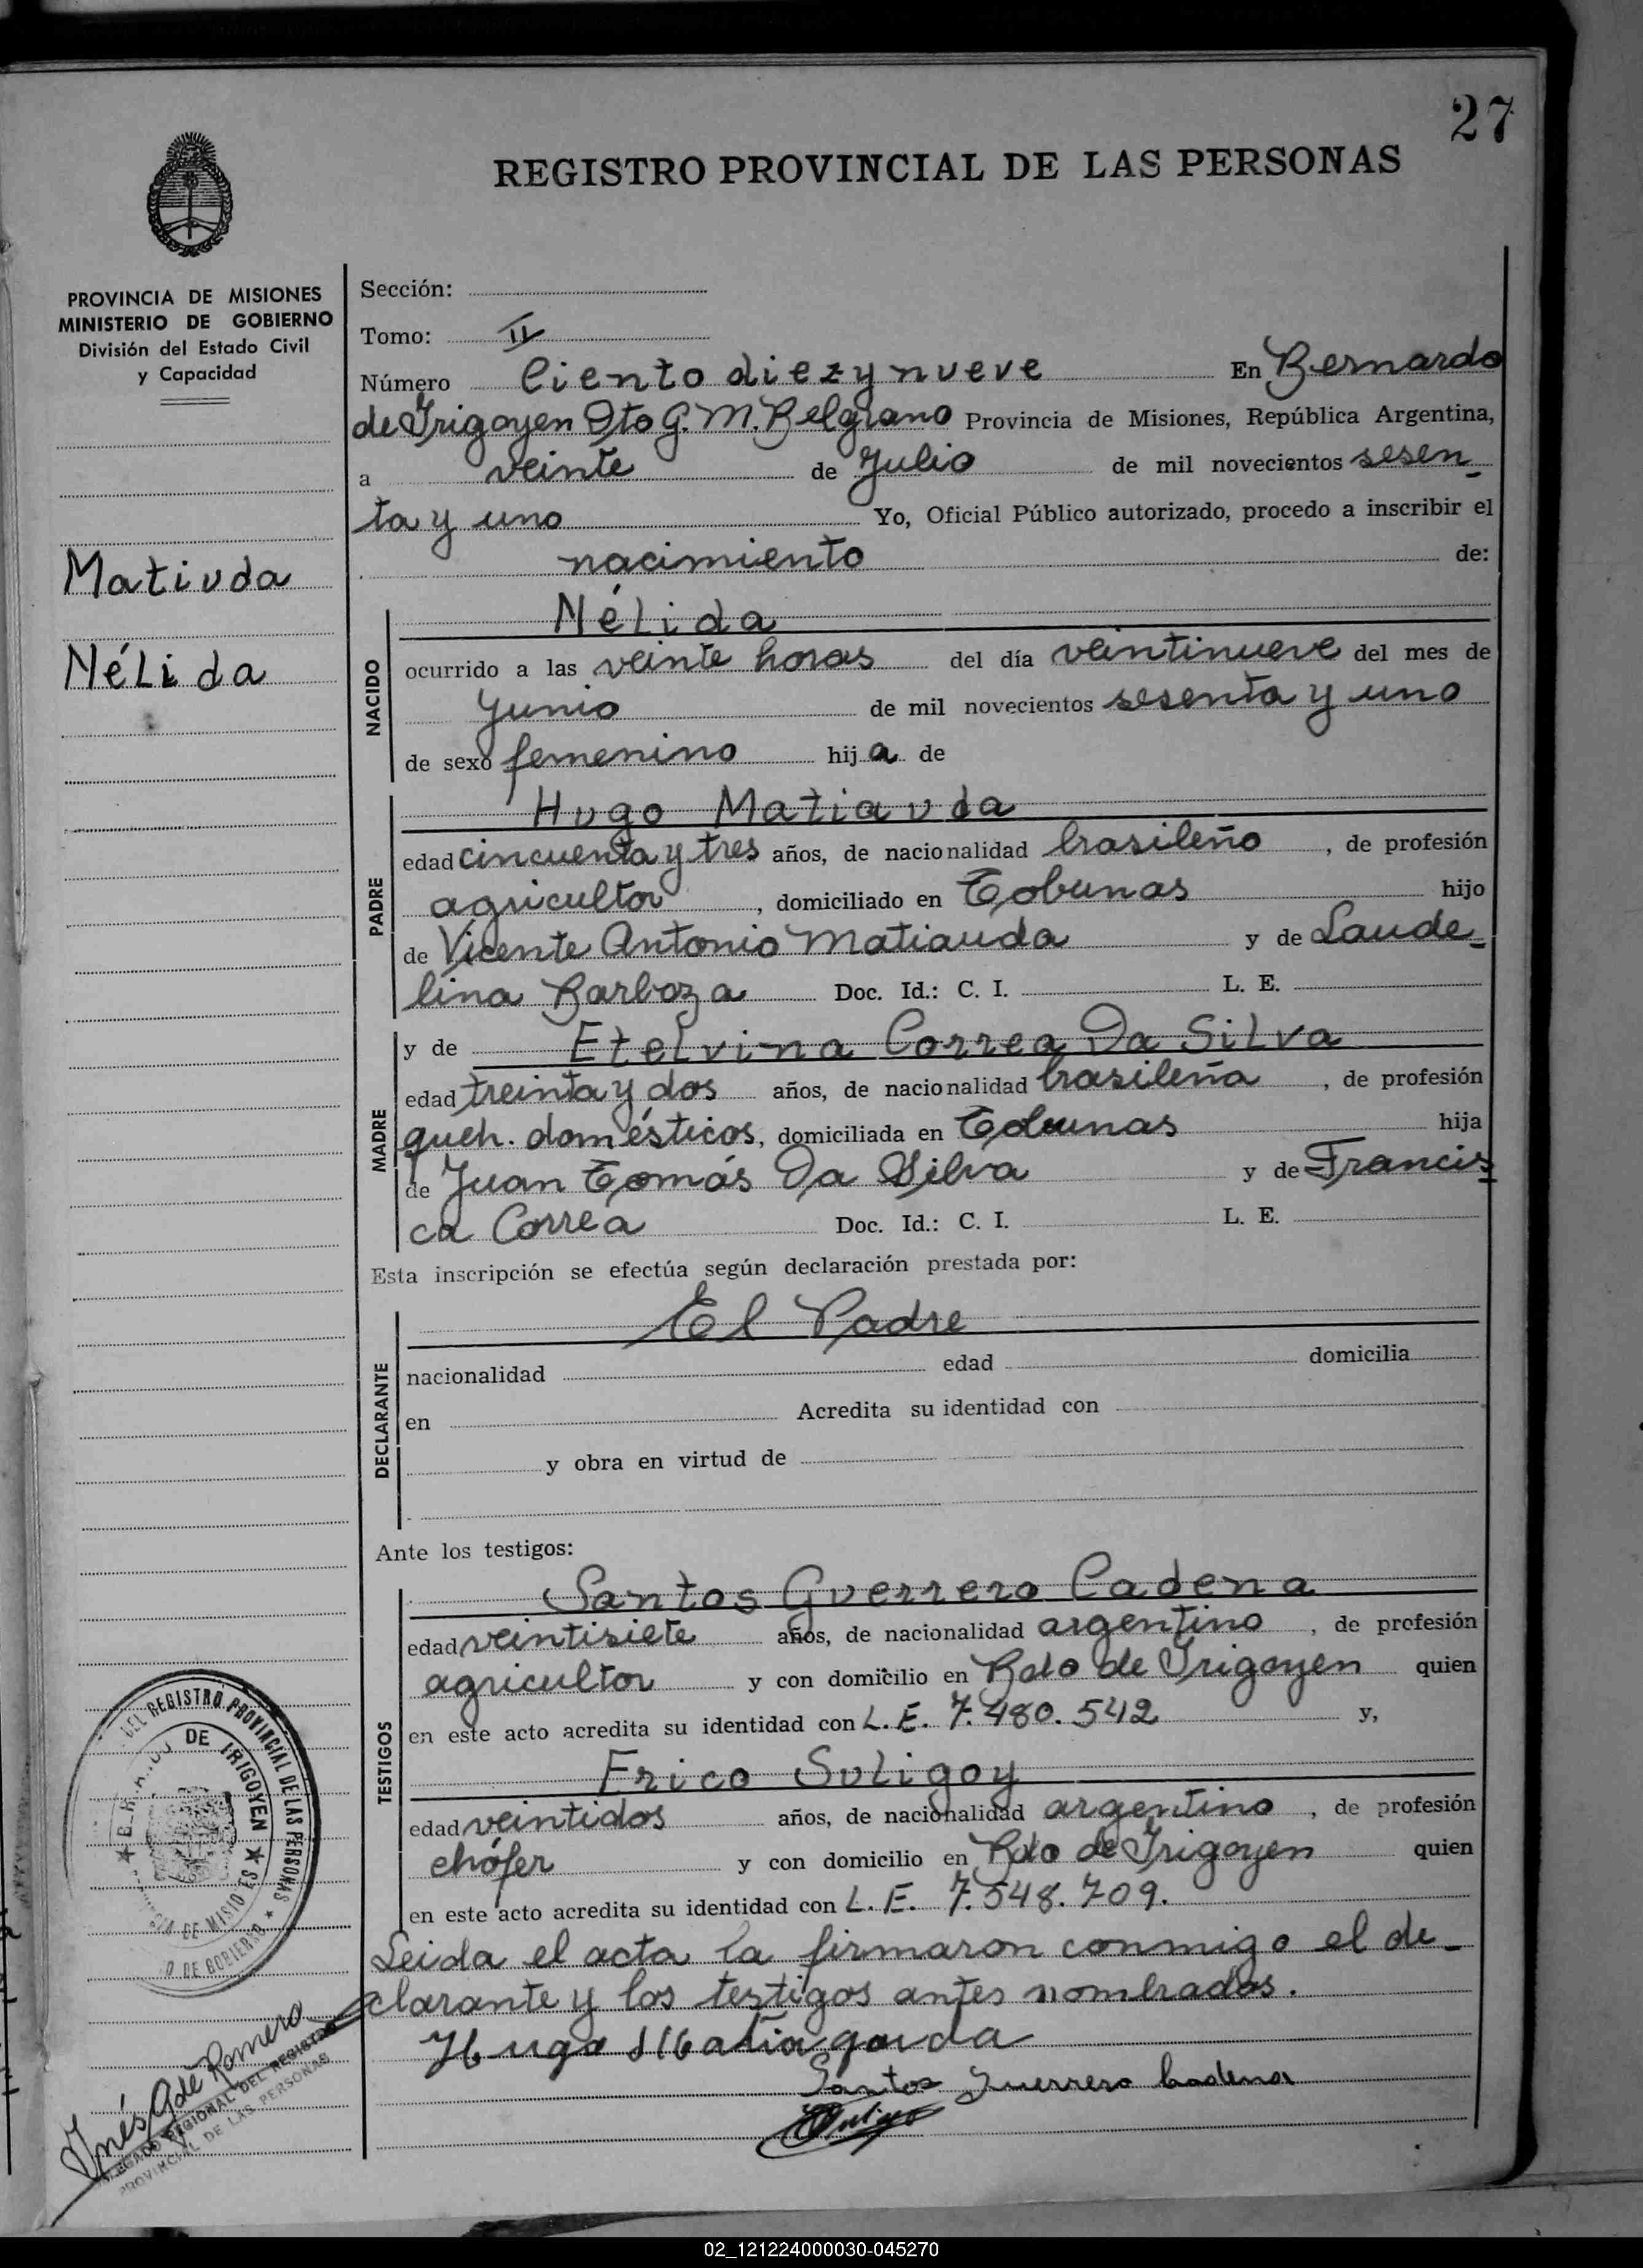 27
REGISTRO PROVINCIAL DE LAS PERSONAS
PROVINCIA DE MISIONES
MINISTERIO DE GOBIERNO
División del Estado Civil
y Capacidad
Matiuda
Nélida
Sección:
Tomo: II
Número Ciento diez y nueve En Bernardo
de Irigoyen Dto G. M. Belgrano Provincia de Misiones, República Argentina,
a veinte de Julio de mil novecientos sesen-
ta y uno Yo, Oficial Público autorizado, procedo a inscribir el
nacimiento de:
NACIDO
Nélida
ocurrido a las veinte horas del día veintinueve del mes de
Junio de mil novecientos sesenta y uno
de sexo femenino hija de
PADRE
Hugo Matiauda
edad cincuenta y tres años, de nacionalidad brasileño, de profesión
agricultor, domiciliado en Tobunas hijo
de Vicente Antonio Matiauda y de Laude-
lina Barboza Doc. Id.: C. I. L. E.
MADRE
y de Etelvina Correa Da Silva
edad treinta y dos años, de nacionalidad brasileña, de profesión
queh. domésticos, domiciliada en Tobunas hija
de Juan Tomás Da Silva y de Francis
ca Correa Doc. Id.: C. I. L. E.
Esta inscripción se efectúa según declaración prestada por:
DECLARANTE
El Padre
nacionalidad edad domicilia
en Acredita su identidad con
y obra en virtud de
Ante los testigos:
TESTIGOS
Santos Guerrero Cadena
edad veintisiete años, de nacionalidad argentino, de profesión
agricultor y con domicilio en Bdo de Irigoyen quien
en este acto acredita su identidad con L. E. 7.480.542 y,
Erico Soligoy
edad veintidos años, de nacionalidad argentino, de profesión
chófer y con domicilio en Bdo de Irigoyen quien
en este acto acredita su identidad con L. E. 7.548.709.
Leida el acta la firmaron conmigo el de-
clarante y los testigos antes nombrados.
Hugo
Santos Guerrero Cadena
DEL REGISTRO PROVINCIAL DE LAS PERSONAS
DE IRIGOYEN
DE MISIONES
DE GOBIERNO
Inés G de Romero
REGIONAL DEL REGISTRO
PROVINCIAL DE LAS PERSONAS
02_121224000030-045270